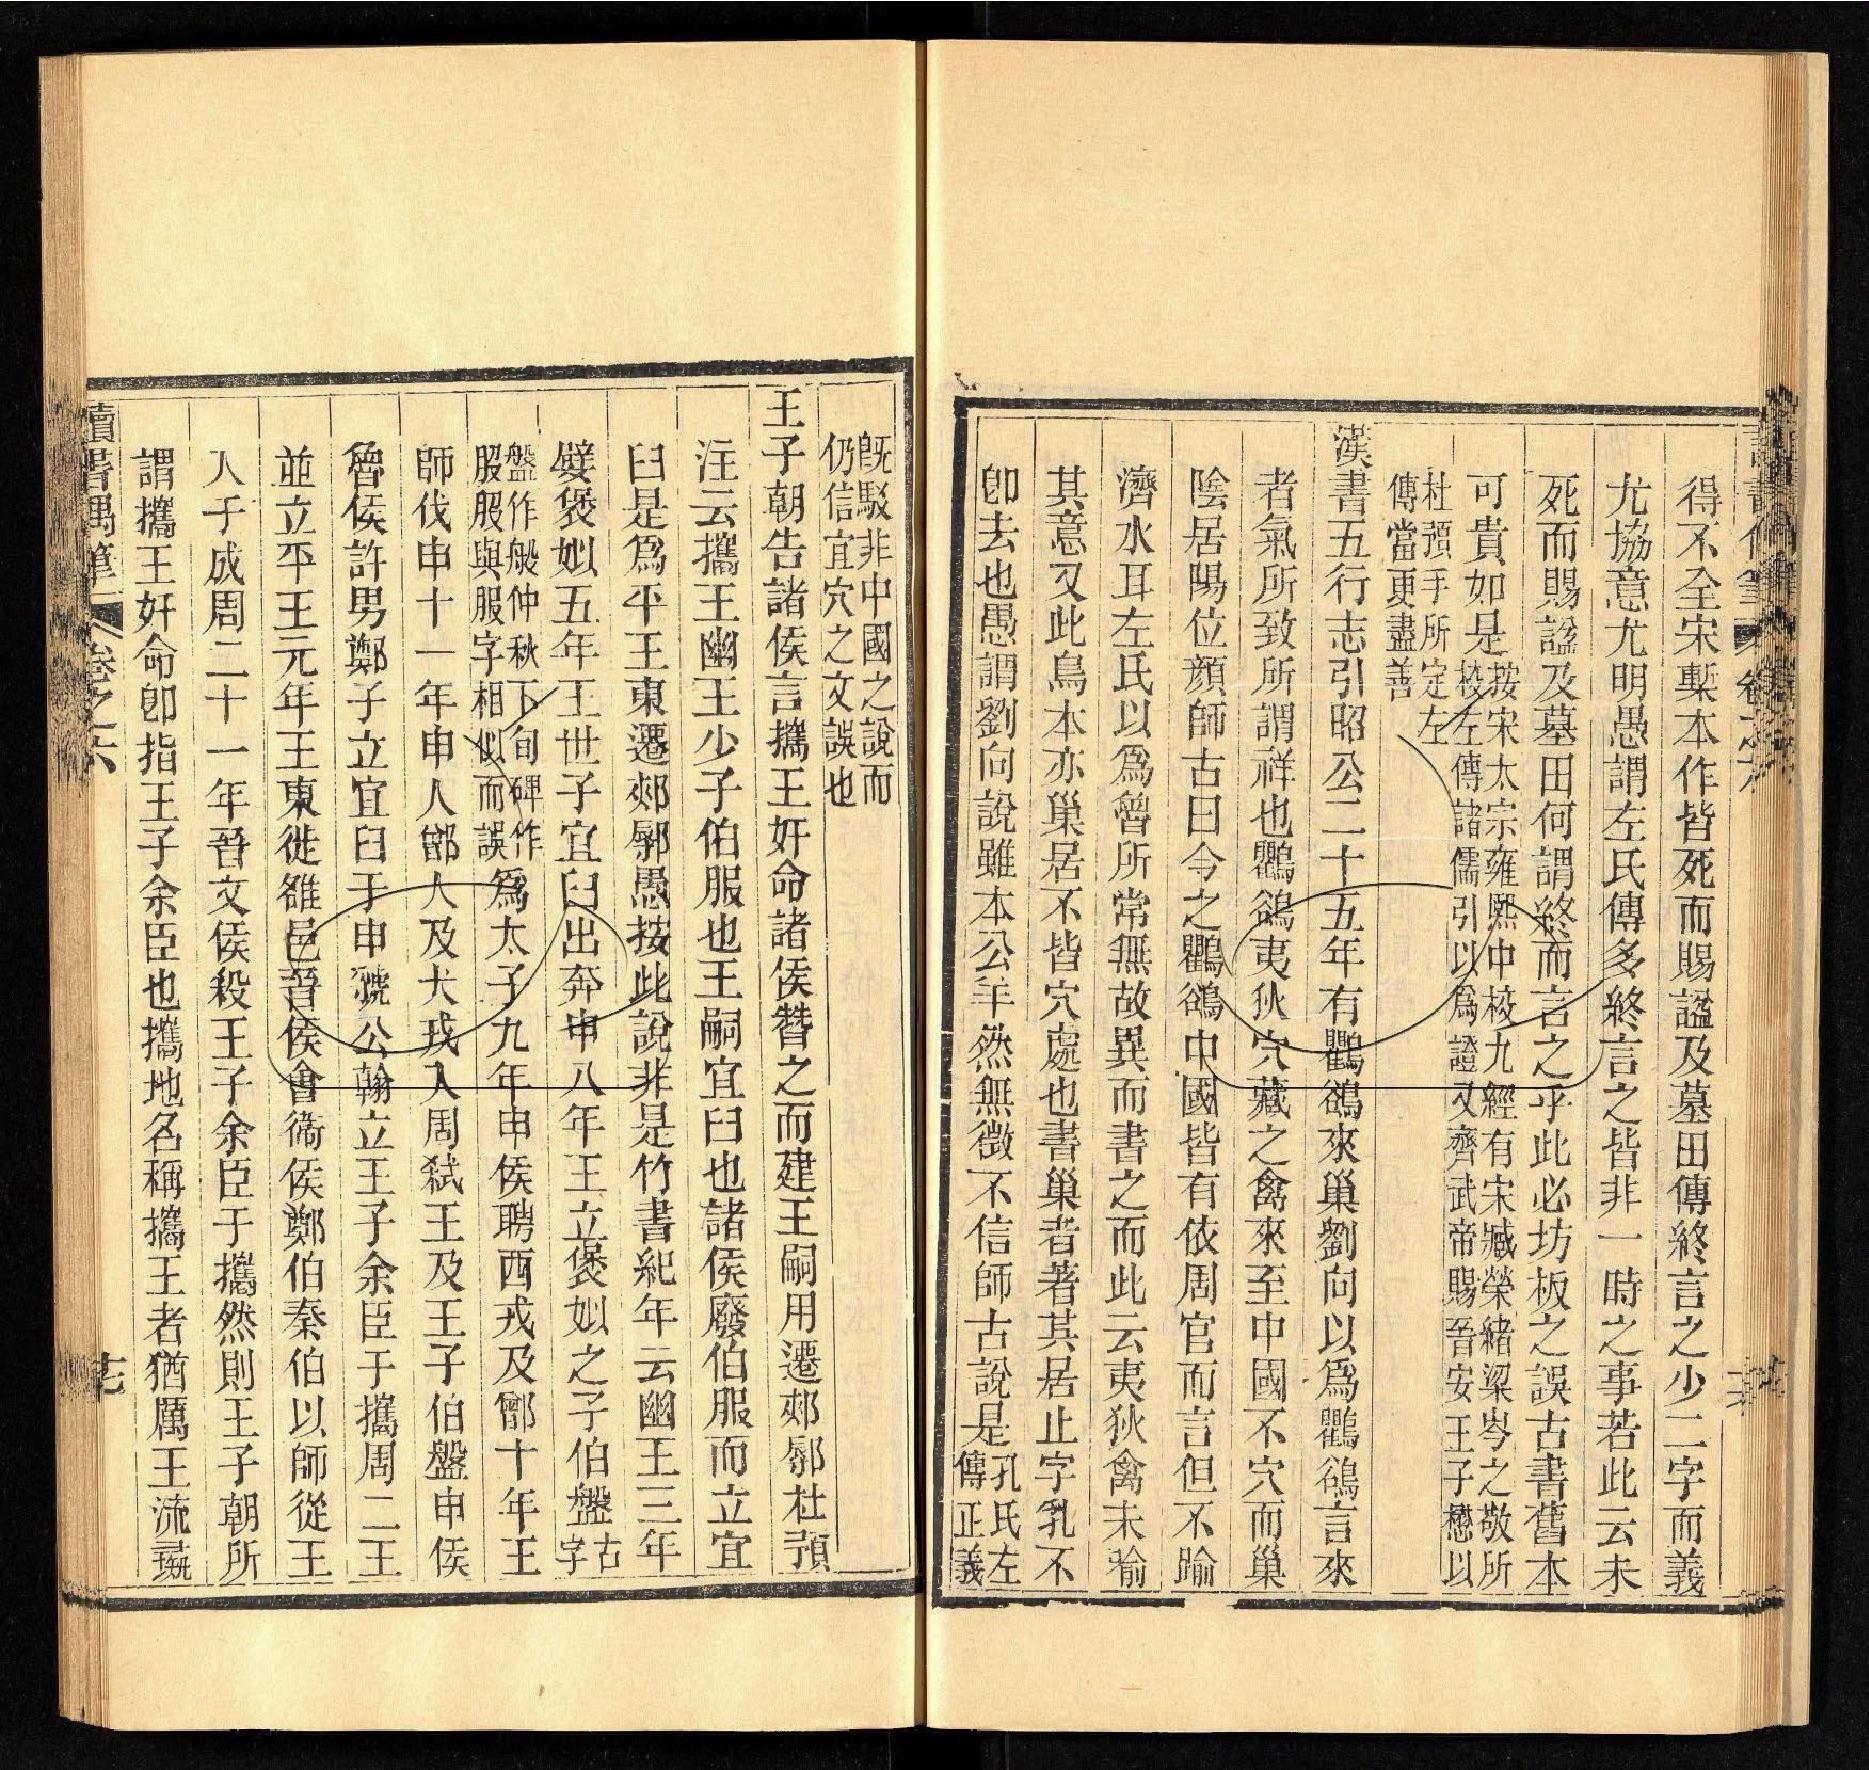 讀書偶筆 卷之六 十六
得不全宋槧本作皆死而賜諡及墓田傳終言之少二字而義
尤協意尤明愚謂左氏傳多終言之皆非一時之事若此云未
死而賜諡及墓田何謂終而言之乎此必坊板之誤古書舊本
可貴如是按宋太宗雍熙中校九經有宋臧榮緒梁岑之敬所
校左傳諸儒引以爲證又齊武帝賜晉安王子懋以
杜預手所定左
傳當更盡善
漢書五行志引昭公二十五年有鸜鵒來巢劉向以爲鸜鵒言來
者氣所致所謂祥也鸜鵒夷狄穴藏之禽來至中國不穴而巢
陰居陽位顔師古曰今之鸜鵒中國皆有依周官而言但不踰
濟水耳左氏以爲魯所常無故異而書之而此云夷狄禽未喻
其意又此鳥本亦巢居不皆穴處也書巢者著其居止字乳不
卽去也愚謂劉向說雖本公羊然無徵不信師古說是孔氏左
傳正義
旣駁非中國之說而
仍信宜穴之文誤也
王子朝告諸侯言攜王奸命諸侯替之而建王嗣用遷郟鄏杜預
注云攜王幽王少子伯服也王嗣宜臼也諸侯廢伯服而立宜
臼是爲平王東遷郟鄏愚按此說非是竹書紀年云幽王三年
嬖褒姒五年王世子宜臼出奔申八年王立褒姒之子伯盤古
字
盤作般仲秋下旬碑作
服服與服字相似而誤爲太子九年申侯聘西戎及鄫十年王
師伐申十一年申人鄫人及犬戎入周弒王及王子伯盤申侯
魯侯許男鄭子立宜臼于申虢公翰立王子余臣于攜周二王
並立平王元年王東徙雒邑晉侯會衞侯鄭伯秦伯以師從王
入于成周二十一年晉文侯殺王子余臣于攜然則王子朝所
謂攜王奸命卽指王子余臣也攜地名稱攜王者猶厲王流彘
讀書偶筆 卷之六 十七